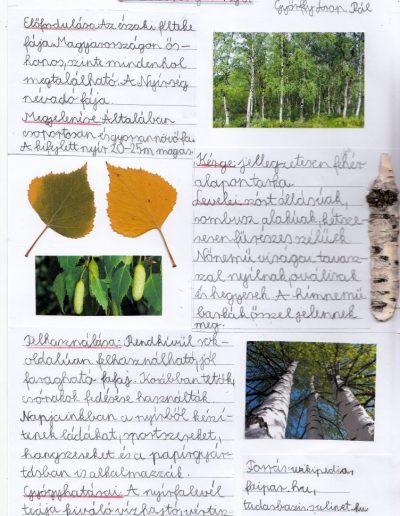 Györffy Pál
Előfordulása: Az északi félteke
fája. Magyarországon ős-
honos, szinte mindenhol
megtalálható. A Nyírség
névadó fája.
Megjelenése: Általában
csoportosan és gyorsan növő fa.
A kifejlett nyír 20-25m magas.
Kérge: jellegzetesen fehér
alapon tarka.
Levelei: szórt állásúak,
rombusz alakúak, kétsze-
resen fűrészes szélűek.
Nőnemű virágai tavasz-
szal nyílnak, oválisak
és hegyesek. A hímnemű
barkák ősszel jelennek
meg.
Felhasználása: Rendkívül sok-
oldalúan felhasználható, jól
faragható fafaj. Korábban tetők,
csónakok fedésére használták.
Napjainkban a nyírből készí-
tenek ládákat, sportszereket,
hangszereket és a papírgyár-
tásban is alkalmazzák.
Gyógyhatásai: A nyírfalevél
teája kiváló vízhajtó, vértisz
Forrás: wikipedia,
faipar.hu,
tudasbazis.sulinet.hu